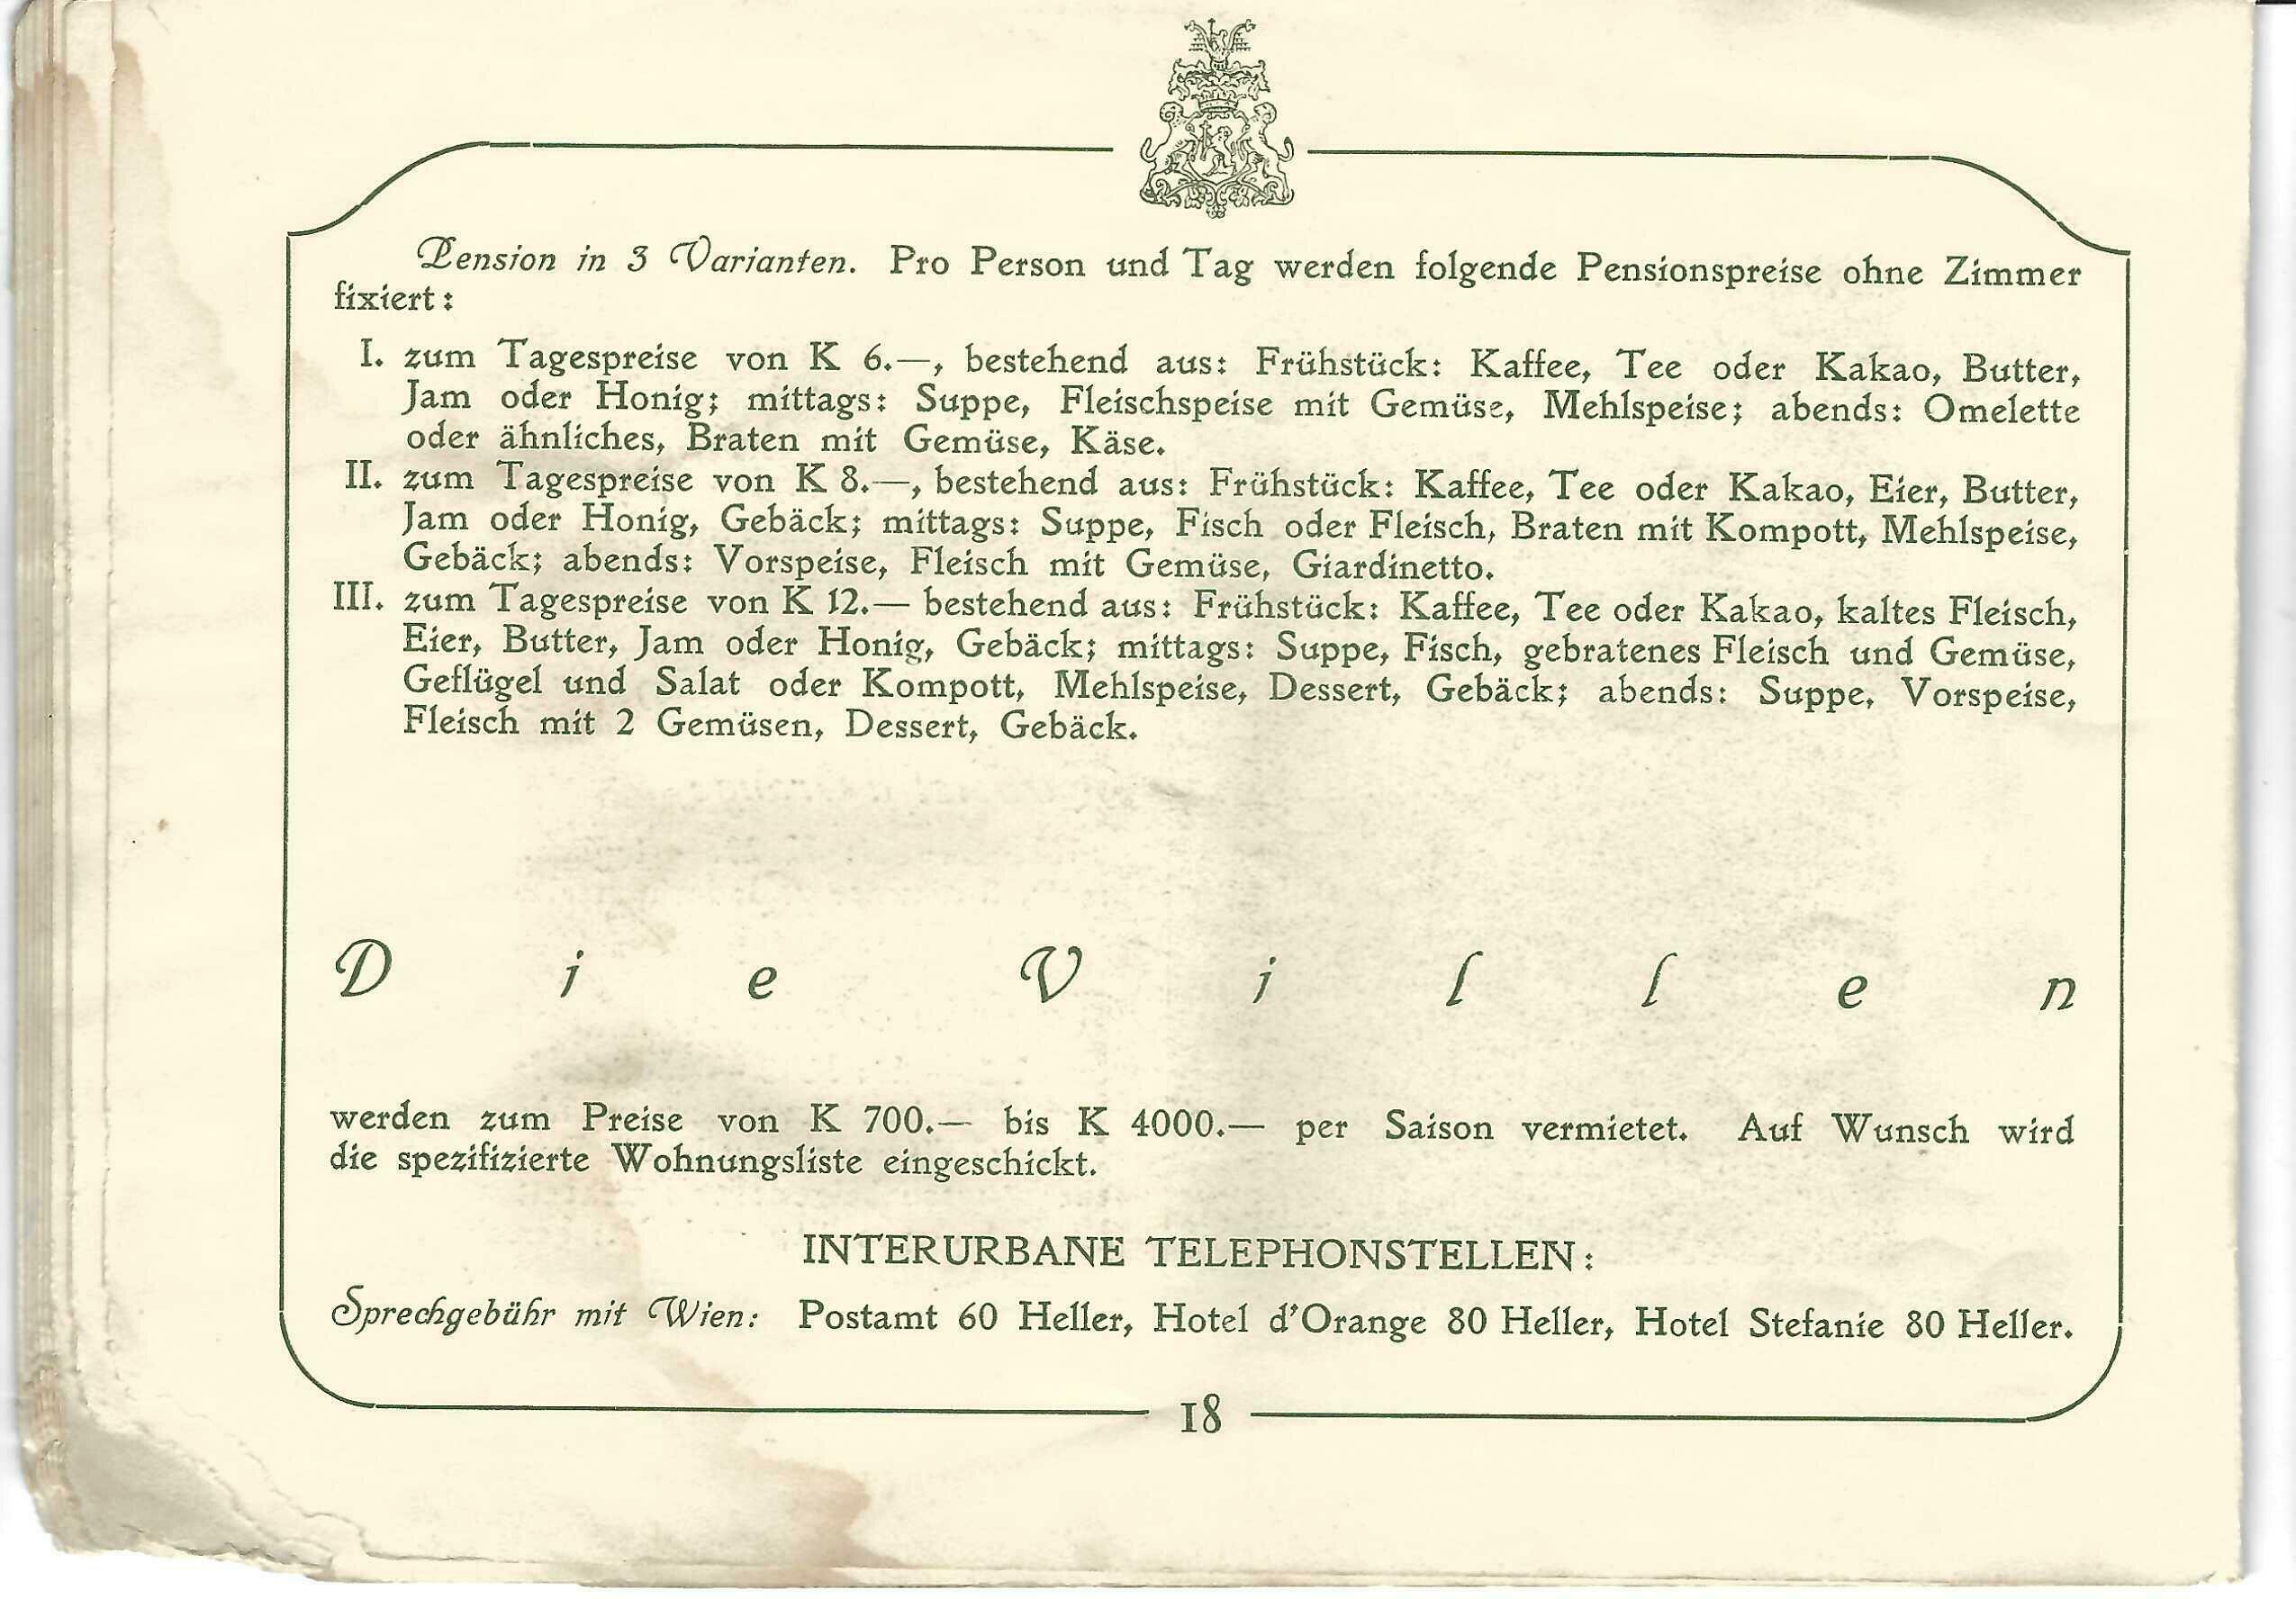 Pension in 3 Varianten. Pro Person und Tag werden folgende Pensionspreise ohne Zimmer
fixiert:
I. zum Tagespreise von K 6.—, bestehend aus: Frühstück: Kaffee, Tee oder Kakao, Butter,
Jam oder Honig; mittags: Suppe, Fleischspeise mit Gemüse, Mehlspeise; abends: Omelette
oder ähnliches, Braten mit Gemüse, Käse.
II. zum Tagespreise von K 8.—, bestehend aus: Frühstück: Kaffee, Tee oder Kakao, Eier, Butter,
Jam oder Honig, Gebäck; mittags: Suppe, Fisch oder Fleisch, Braten mit Kompott, Mehlspeise,
Gebäck; abends: Vorspeise, Fleisch mit Gemüse, Giardinetto.
III. zum Tagespreise von K 12.— bestehend aus: Frühstück: Kaffee, Tee oder Kakao, kaltes Fleisch,
Eier, Butter, Jam oder Honig, Gebäck; mittags: Suppe, Fisch, gebratenes Fleisch und Gemüse,
Geflügel und Salat oder Kompott, Mehlspeise, Dessert, Gebäck; abends: Suppe, Vorspeise,
Fleisch mit 2 Gemüsen, Dessert, Gebäck.
Die Villen
werden zum Preise von K 700.— bis K 4000.— per Saison vermietet. Auf Wunsch wird
die spezifizierte Wohnungsliste eingeschickt.
INTERURBANE TELEPHONSTELLEN:
Sprechgebühr mit Wien: Postamt 60 Heller, Hotel d'Orange 80 Heller, Hotel Stefanie 80 Heller.
18